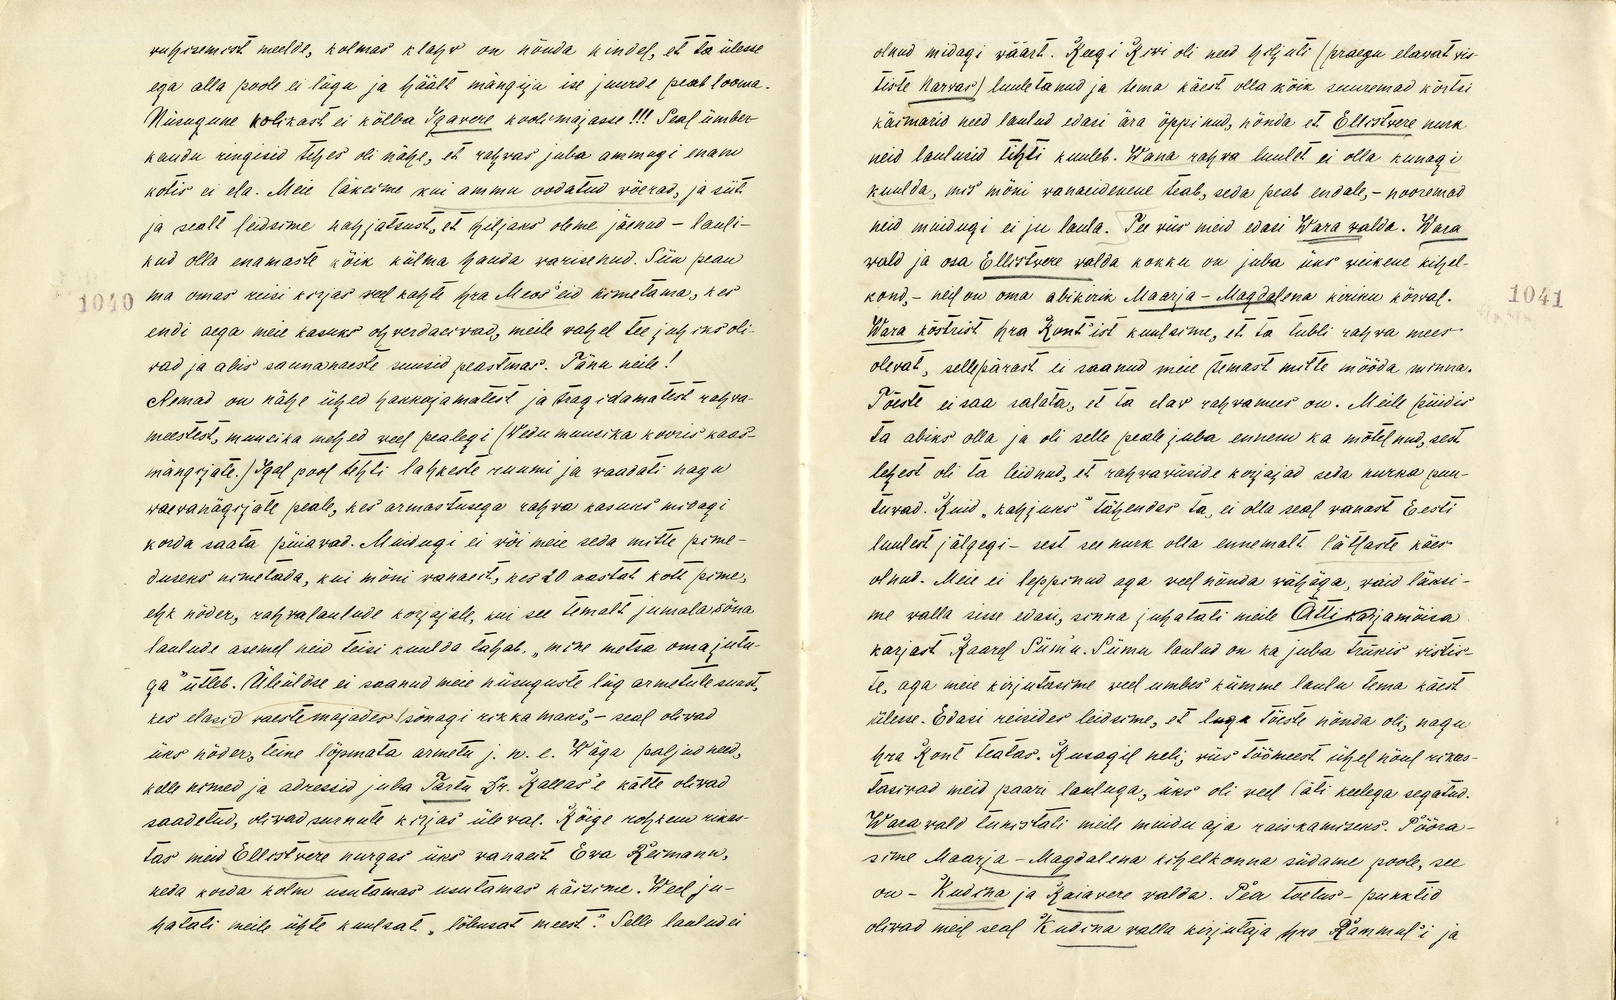 ruhisemist meelde, kolmas klahv on nõnda kindel, et ta ülesse
ega alla poole ei liigu ja häält mängija ise juurde peab looma.
Niisugune kolikast ei kõlba Igavere koolimajasse!!! Seal ümber
kaudu ringisid tehes oli nähe, et rahvas juba ammugi enam
kotis ei ela. Meie läksime kui ammu oodatud võerad, ja siit
ja sealt leidsime kahjatsust, et hiljaks oleme jäenud – lauli-
kud olla enamaste kõik külma hauda varisenud. Siin pean
1040
ma omas reisi kirjas veel kahte hra Meos'eid nimetama, kes
endi aega meie kasuks ohverdasivad, meile vahel tee juhiks oli-
vad ja abis saunanaeste suusid peastmas. Tänu neile!
Nemad on nähe ühed hakkajamatest ja tragidamatest rahva-
meestest, muusika mehed veel pealegi (Vedu muusika kooris kaas-
mängijate.) Igal pool tehti lahkeste ruumi ja vaadati nagu
vaevanägijate peale, kes armastusega rahva kasuks midagi
korda saata püiavad. Muidugi ei või meie seda mitte pime-
duseks nimetada, kui mõni vanaeit, kes 20 aastat kott pime,
ehk nõder, rahvalaulude korjajale, kui see temalt jumalasõna
laulude asemel neid teisi kuulda tahab, „mine metsa oma jutu-
ga" ütleb. Üleüldse ei saanud meie niisuguste liig armetute suust,
kes elasid vaestemajades sõnagi rikkamaks, – seal olivad
üks nõder, teine lõpmata armetu j. n. e. Wäga paljud need,
kelle nimed ja adressid juba Tartu Dr. Kallas'e kätte olivad
saadetud, olivad surnute kirjas üleval. Kõige rohkem rikas-
tas meid Ellistvere nurgas üks vanaeit Eva Reimann,
keda korda kolm usutamas usutamas käisime. Weel ju-
hatati meile ühte kuulsat „lõbusat meest". Selle laulud ei
olnud midagi väärt. Keegi Kivi oli need hiljuti (praegu elavat vis-
tiste Narvas) luuletanud ja tema käest olla kõik suuremad kõrtsi
käimarid need laulud edasi ära õppinud, nõnda et Ellistvere nurk
neid laulusid tihti kuuleb. Wana rahva luulet ei olla kunagi
kuulda, mis mõni vanaeidekene teab, seda peab endale, – nooremad
neid muidugi ei ju laula. Tee viis meid edasi Wara valda. Wara
vald ja osa Ellistvere valda kokku on juba üks veikene kihel-
kond, – neil on oma abikirik Maarja-Magdalena kiriku kõrval.
1041
Wara köstrist hra Kont'ist kuulsime, et ta tubli rahva mees
olevat, sellepärast ei saanud meie temast mitte mööda minna.
Tõeste ei saa salata, et ta elav rahvamees on. Meile püidis
ta abiks olla ja oli selle peale juba ennem ka mõtelnud, sest
lehest oli ta leidnud, et rahvaviiside korjajad seda nurka puu-
tuvad. Kuid „kahjuks" tähendas ta, ei olla seal vanast Eesti
luulest jälgegi – sest see nurk olla ennemalt lätlaste käes
olnud. Meie ei leppinud aga veel nõnda vähäga, vaid läksi-
me valla sisse edasi, sinna juhatati meile Ätti karjamõisa
karjast Kaarel Siimu. Siimu laulud on ka juba trükis vistis-
te, aga meie kirjutasime veel umbes kümme laulu tema käest
ülesse. Edasi reisides leidsime, et lugu tõeste nõnda oli, nagu
hra Kont teatas. Kusagil neli, viis töömeest ühel nõul rikas-
tasivad meid paari lauluga, üks oli veel läti keelega segatud.
Wara vald tunistati meile muidu aja raiskamiseks. Pööra-
sime Maarja-Magdalena kihelkonna südame poole, see
on – Kudina ja Kaiavere valda. Pea toetus-punktid
olivad meil seal Kudina valla kirjutaja hra Rammul'i ja